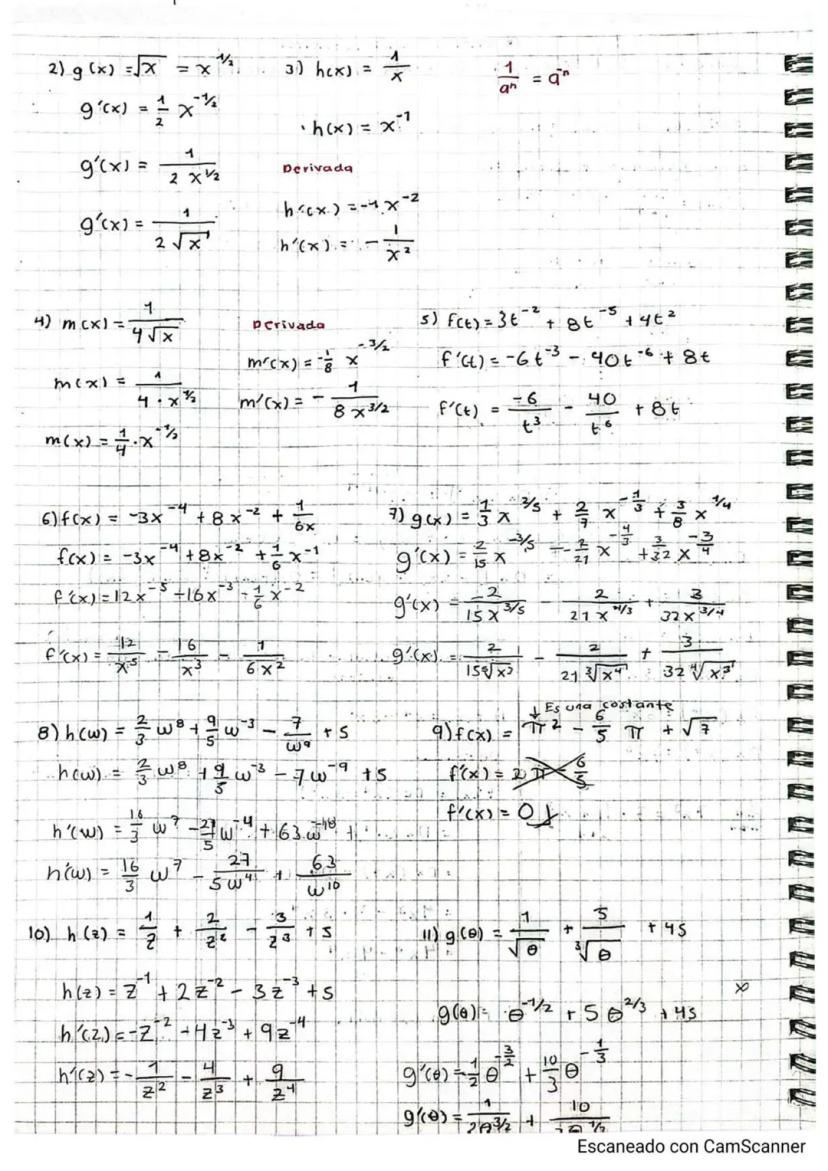 2) g(x) = √x = x^1/2
g'(x) = 1/2 x^-1/2
g'(x) = 1/(2 x^1/2)
g'(x) = 1/(2√x)
3) h(x) = 1/x
h(x) = x^-1
Derivada
h'(x) = -1 x^-2
h'(x) = - 1/x^2
1/a^n = a^-n
4) m(x) = 1/(4√x)
m(x) = 1/(4 · x^1/2)
m(x) = 1/4 · x^-1/2
Derivada
m'(x) = -1/8 x^-3/2
m'(x) = - 1/(8 x^3/2)
5) f(t) = 3t^-2 + 8t^-5 + 4t^2
f'(t) = -6t^-3 - 40t^-6 + 8t
f'(t) = -6/t^3 - 40/t^6 + 8t
6) f(x) = -3x^-4 + 8x^-2 + 1/6x
f(x) = -3x^-4 + 8x^-2 + 1/6 x^-1
f'(x) = 12x^-5 - 16x^-3 - 1/6 x^-2
f'(x) = 12/x^5 - 16/x^3 - 1/(6x^2)
7) g(x) = 1/3 x^2/5 + 2/7 x^-1/3 + 3/8 x^1/4
g'(x) = 2/15 x^-3/5 - 2/21 x^-4/3 + 3/32 x^-3/4
g'(x) = 2/(15x^3/5) - 2/(21x^4/3) + 3/(32x^3/4)
g'(x) = 2/(15 ⁵√x³) - 2/(21 ³√x⁴) + 3/(32 ⁴√x³)
8) h(w) = 2/3 w^8 + 9/5 w^-3 - 7/w^9 + 5
h(w) = 2/3 w^8 + 9/5 w^-3 - 7w^-9 + 5
h'(w) = 16/3 w^7 - 27/5 w^-4 + 63w^-10
h'(w) = 16/3 w^7 - 27/(5w^4) + 63/w^10
↓ Es una costante
9) f(x) = π^2 - 6/5 π + √7
f'(x) = 2π - 6/5
f'(x) = 0
10) h(z) = 1/z + 2/z^2 - 3/z^3 + 5
h(z) = z^-1 + 2z^-2 - 3z^-3 + 5
h'(z) = -z^-2 - 4z^-3 + 9z^-4
h'(z) = - 1/z^2 - 4/z^3 + 9/z^4
11) g(θ) = 1/√θ + 5/³√θ + 45
g(θ) = θ^-1/2 + 5θ^2/3 + 45
g'(θ) = -1/2 θ^-3/2 + 10/3 θ^-1/3
g'(θ) = 1/(2θ^3/2) + 10
Escaneado con CamScanner